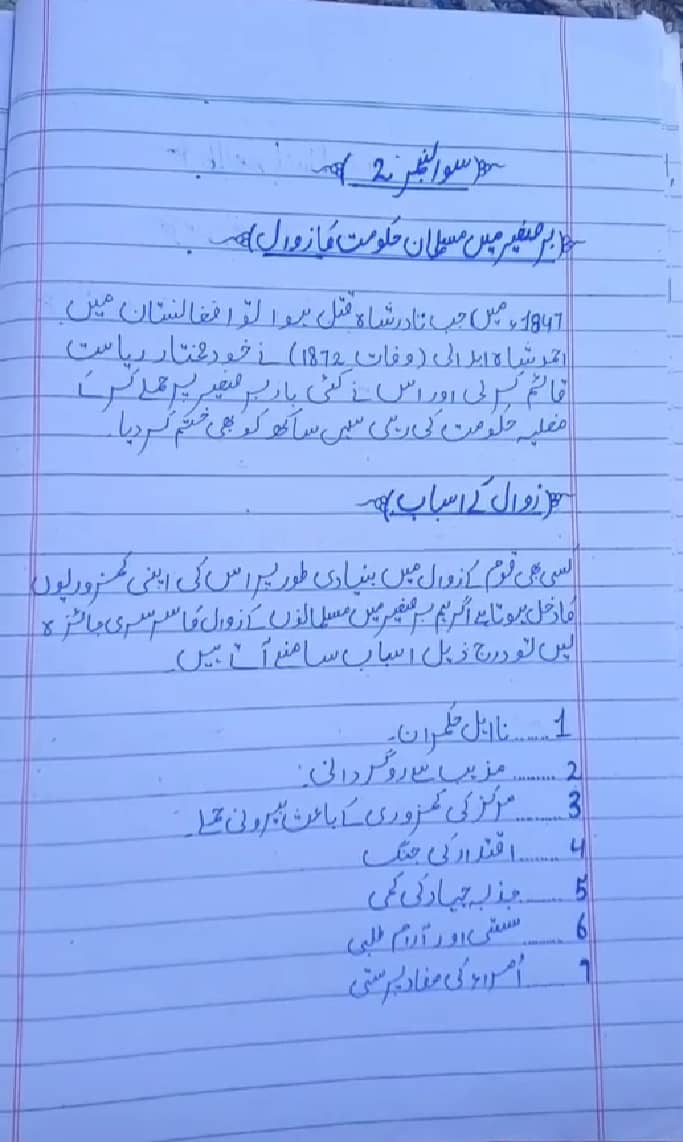 سوال نمبر 2
برصغیر میں مسلمان حکومت کا زوال
1847ء میں جب نادر شاہ قتل ہوا تو افغانستان میں
احمد شاہ ابدالی (وفات 1872) نے خود مختار ریاست
قائم کر لی اور اس نے کئی بار برصغیر پر حملے کر کے
مغلیہ حکومت کی رہی سہی ساکھ کو بھی ختم کر دیا۔
زوال کے اسباب
کسی بھی قوم کے زوال میں بنیادی طور پر اس کی اپنی کمزوریوں
کا دخل ہوتا ہے اگر ہم برصغیر میں مسلمانوں کے زوال کا سرسری جائزہ
لیں تو درج ذیل اسباب سامنے آتے ہیں۔
1 ...... نااہل حکمران۔
2 ...... مذہب سے روگردانی۔
3 ...... مرکز کی کمزوری کے باعث بیرونی حملے۔
4 ...... اقتدار کی جنگ
5 ...... جذبہ جہاد کی کمی
6 ...... سستی اور آرام طلبی
7 ...... اُمراء کی مفاد پرستی